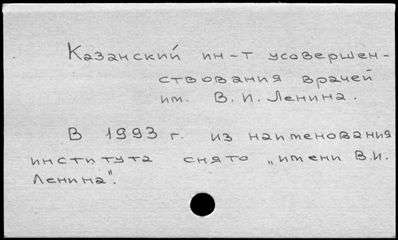 Казанский ин-т усовершен-
ствования врачей
им. В. И. Ленина.
В 1993 г. из наименования
института снято „имени В.И.
Ленина".